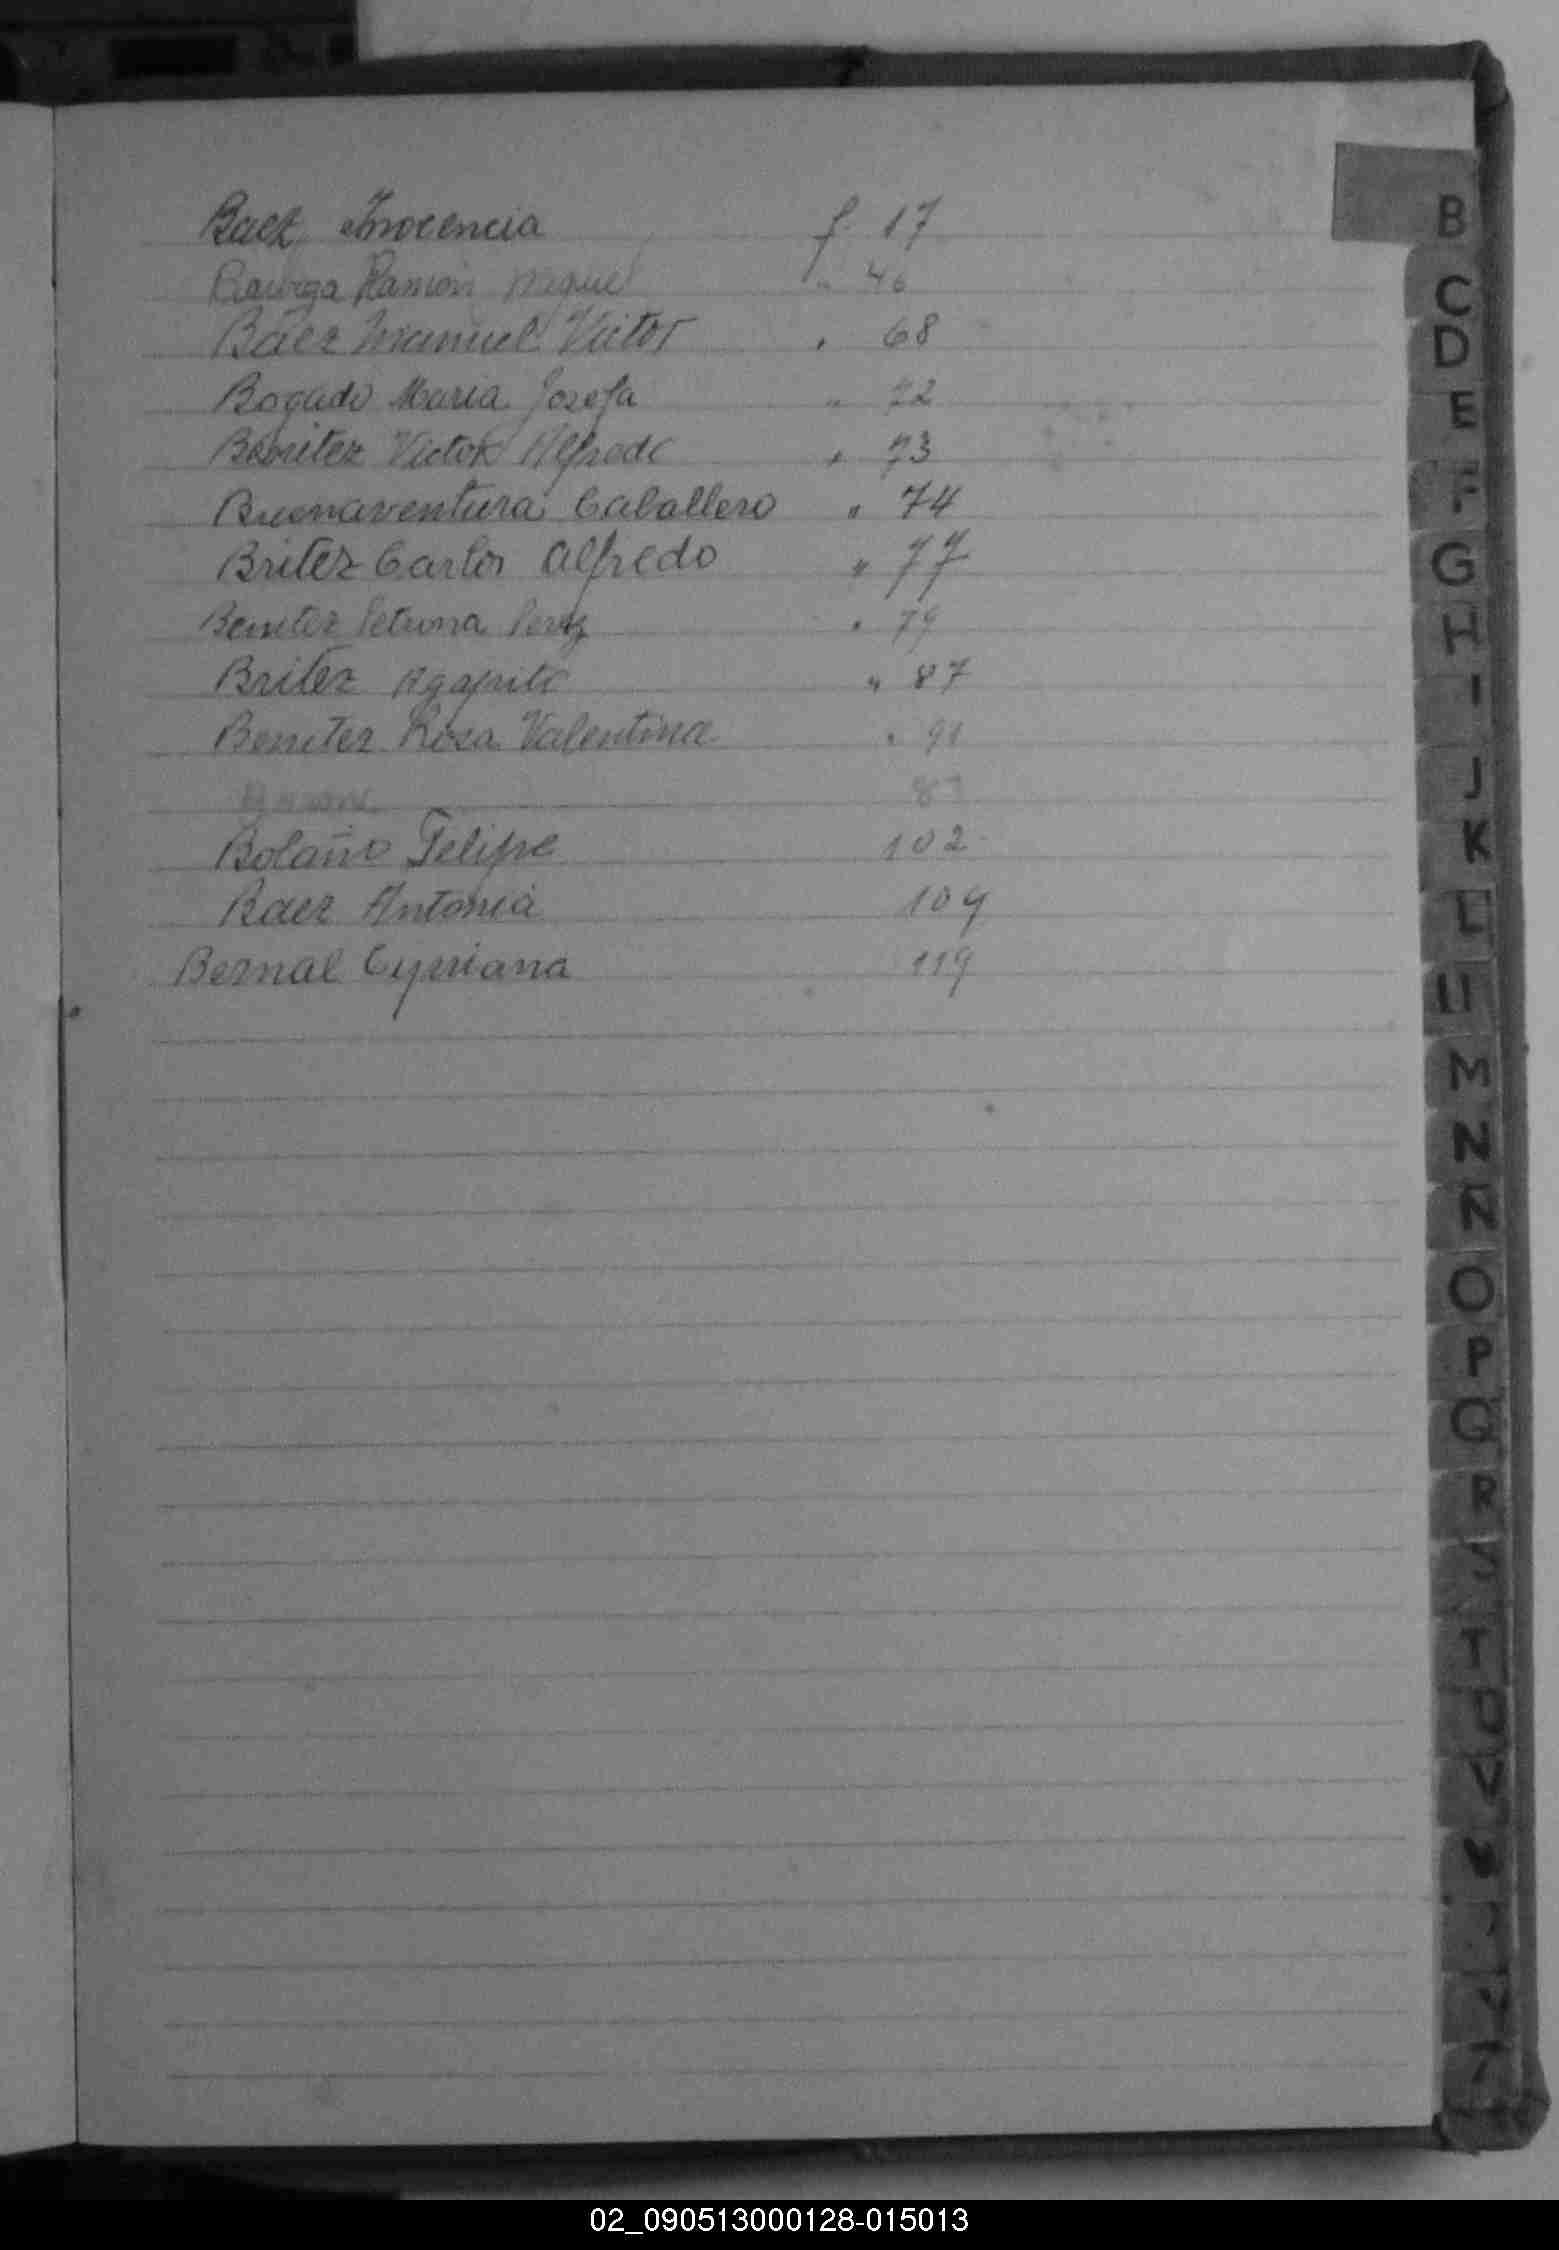 Baez Inocencia f. 17
Ramon Miguel " 46
Báez Manuel Victor " 68
Bogado Maria Josefa " 72
Benitez Victor Alfredo " 73
Buenaventura Caballero " 74
Britez Carlos Alfredo " 77
Benitez Petrona Perez " 79
Britez Agapito " 87
Benitez Rosa Valentina " 91
Bolaño Felipe 102
Baez Antonia 109
Bernal Cypriana 119
B
C
D
E
F
G
H
I
J
K
L
LL
M
N
Ñ
O
P
Q
R
S
T
U
V
Y
02_090513000128-015013